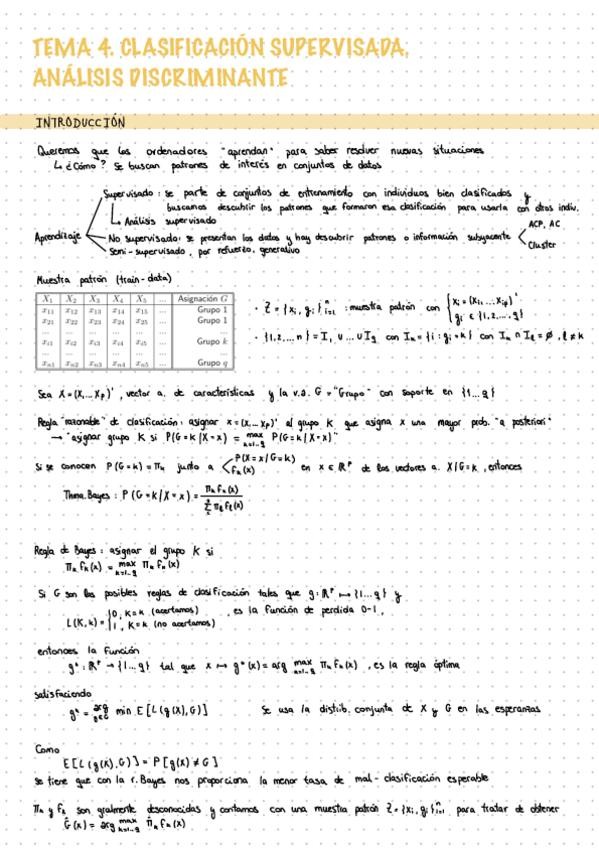 TEMA 4. CLASIFICACIÓN SUPERVISADA.
ANÁLISIS DISCRIMINANTE
INTRODUCCIÓN
Queremos que los ordenadores "aprendan" para saber resolver nuevas situaciones
↳ ¿Cómo? Se buscan patrones de interés en conjuntos de datos
Supervisado: se parte de conjuntos de entrenamiento con individuos bien clasificados y
buscamos descubrir los patrones que formaron esa clasificación para usarla con otros indiv.
↳ Análisis supervisado
Aprendizaje
No supervisado: se presentan los datos y hay descubrir patrones o información subyacente
ACP, AC
Cluster
Semi-supervisado, por refuerzo, generativo
Muestra patrón (train-data)
X₁ X₂ X₃ X₄ X₅ ... Asignación G
x₁₁ x₁₂ x₁₃ x₁₄ x₁₅ ... Grupo 1
x₂₁ x₂₂ x₂₃ x₂₄ x₂₅ ... Grupo 1
... ... ... ... ... ... ...
xᵢ₁ xᵢ₂ xᵢ₃ xᵢ₄ xᵢ₅ ... Grupo k
... ... ... ... ... ... ...
xₙ₁ xₙ₂ xₙ₃ xₙ₄ xₙ₅ ... Grupo q
· Z = {xᵢ, gᵢ}ⁿᵢ₌₁ : muestra patrón con { xᵢ = (xᵢ₁ ... xᵢₚ)'
gᵢ ∈ {1, 2, ..., q}
· {1, 2, ..., n} = I₁ ∪ ... ∪ I_q con I_k = {i : gᵢ = k} con I_k ∩ I_ℓ = ∅, ℓ ≠ k
Sea X = (X₁ ... Xₚ)', vector a. de características y la v.a. G = "Grupo" con soporte en {1 ... q}
Regla "razonable" de clasificación: asignar x = (x₁ ... xₚ)' al grupo K que asigna x una mayor prob. "a posteriori"
→ "asignar grupo K si P(G = k | X = x) = max P(G = k | X = x)"
k=1...q
Si se conocen P(G = k) = π_k junto a < P(X = x / G = k)
f_k(x)
en x ∈ ℝᵖ de los vectores a. X/G = k, entonces
Thma. Bayes: P(G = k / X = x) = π_k f_k(x) / Σ π_ℓ f_ℓ(x)
Regla de Bayes: asignar el grupo K si
π_k f_k(x) = max π_k f_k(x)
k=1...q
Si G son las posibles reglas de clasificación tales que g: ℝᵖ ↦ {1 ... q} y
L(K, k) = { 0, K = k (acertamos)
1, K = k (no acertamos)
, es la función de perdida 0-1,
entonces la función
g* : ℝᵖ → {1 ... q} tal que x ↦ g*(x) = arg max π_k f_k(x), es la regla óptima
k=1...q
satisfaciendo
g* = arg min E[L(g(X), G)]
g∈G
Se usa la distrib. conjunta de X y G en las esperanzas
Como
E[L(g(X), G)] = P[g(X) ≠ G]
se tiene que con la r. Bayes nos proporciona la menor tasa de mal-clasificación esperable
π_k y f_k son gralmente desconocidas y contamos con una muestra patrón Z = {xᵢ, gᵢ}ⁿᵢ₌₁ para tratar de obtener
Ĝ(x) = arg max π̂_k f̂_k(x)
k=1...q